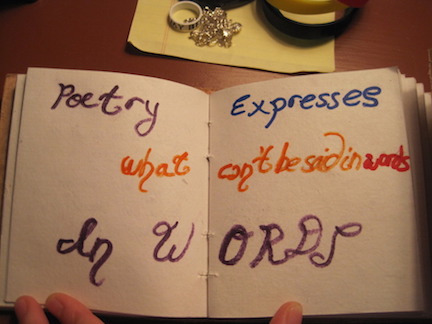 Poetry Expresses
what can't be said in words
In WORDS